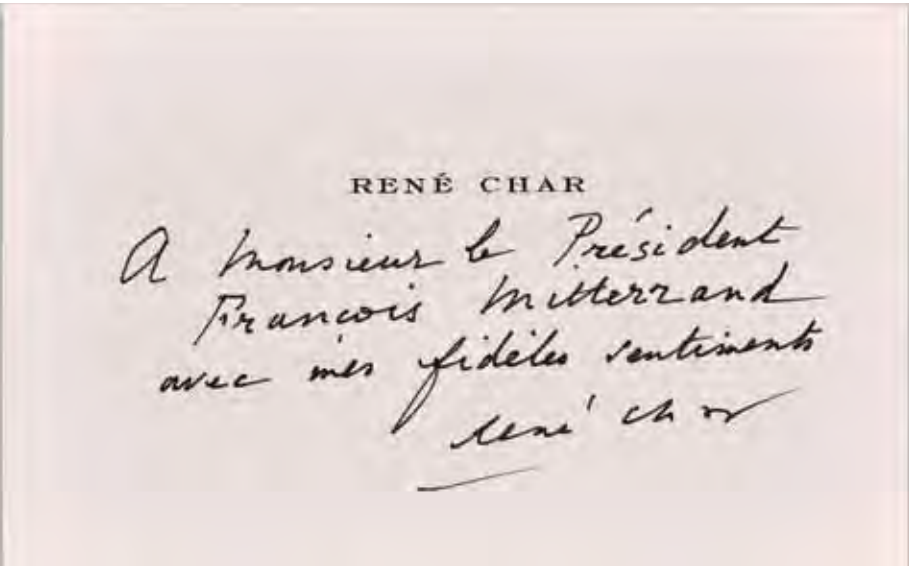 RENÉ CHAR
A Monsieur le Président
François Mitterrand
avec mes fidèles sentiments
René Char